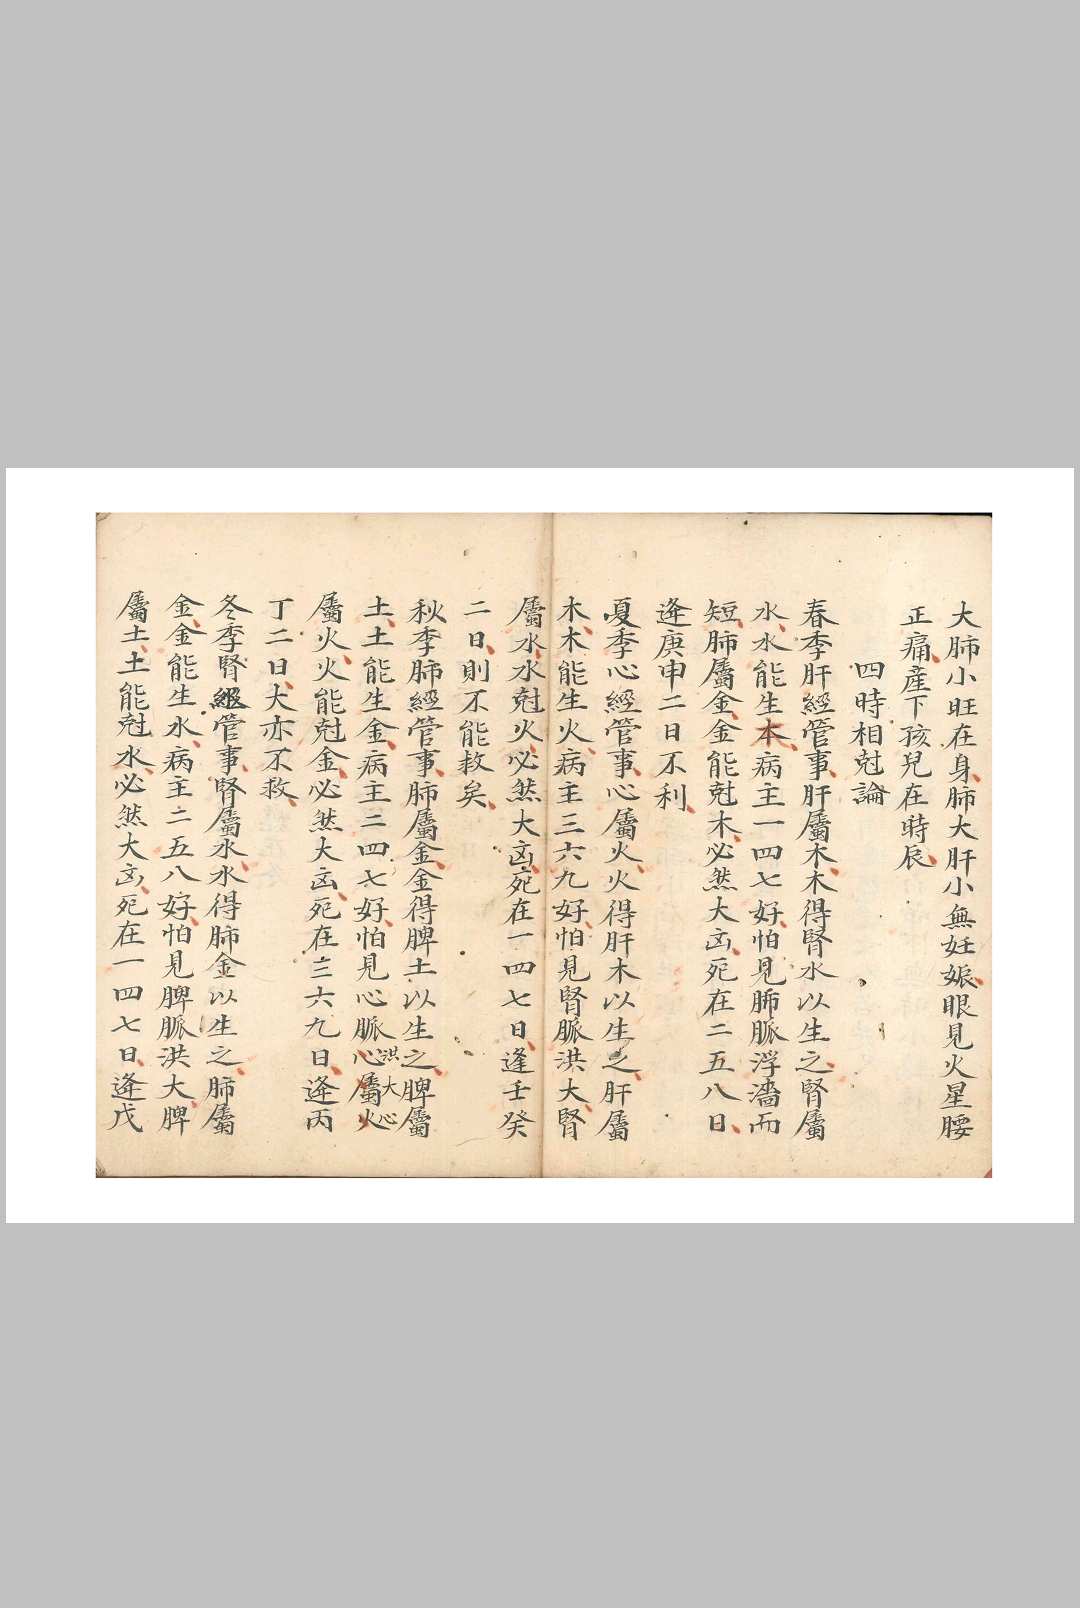 大肺小旺在身肺大肝小無妊娠眼見火星腰
正痛產下孩兒在時辰
四時相尅論
春季肝經管事肝屬木木得腎水以生之腎屬
水水能生木病主一四七好怕見肺脈浮濇而
短肺屬金金能尅木必然大凶死在二五八日
逢庚申二日不利
夏季心經管事心屬火火得肝木以生之肝屬
木木能生火病主三六九好怕見腎脈洪大腎
屬水水尅火必然大凶死在一四七日逢壬癸
二日則不能救矣
秋季肺經管事肺屬金金得脾土以生之脾屬
土土能生金病主二四七好怕見心脈洪大心心屬火
屬火火能尅金必然大凶死在三六九日逢丙
丁二日大亦不救
冬季腎經管事腎屬水水得肺金以生之肺屬
金金能生水病主二五八好怕見脾脈洪大脾
屬土土能尅水必然大凶死在一四七日逢戊